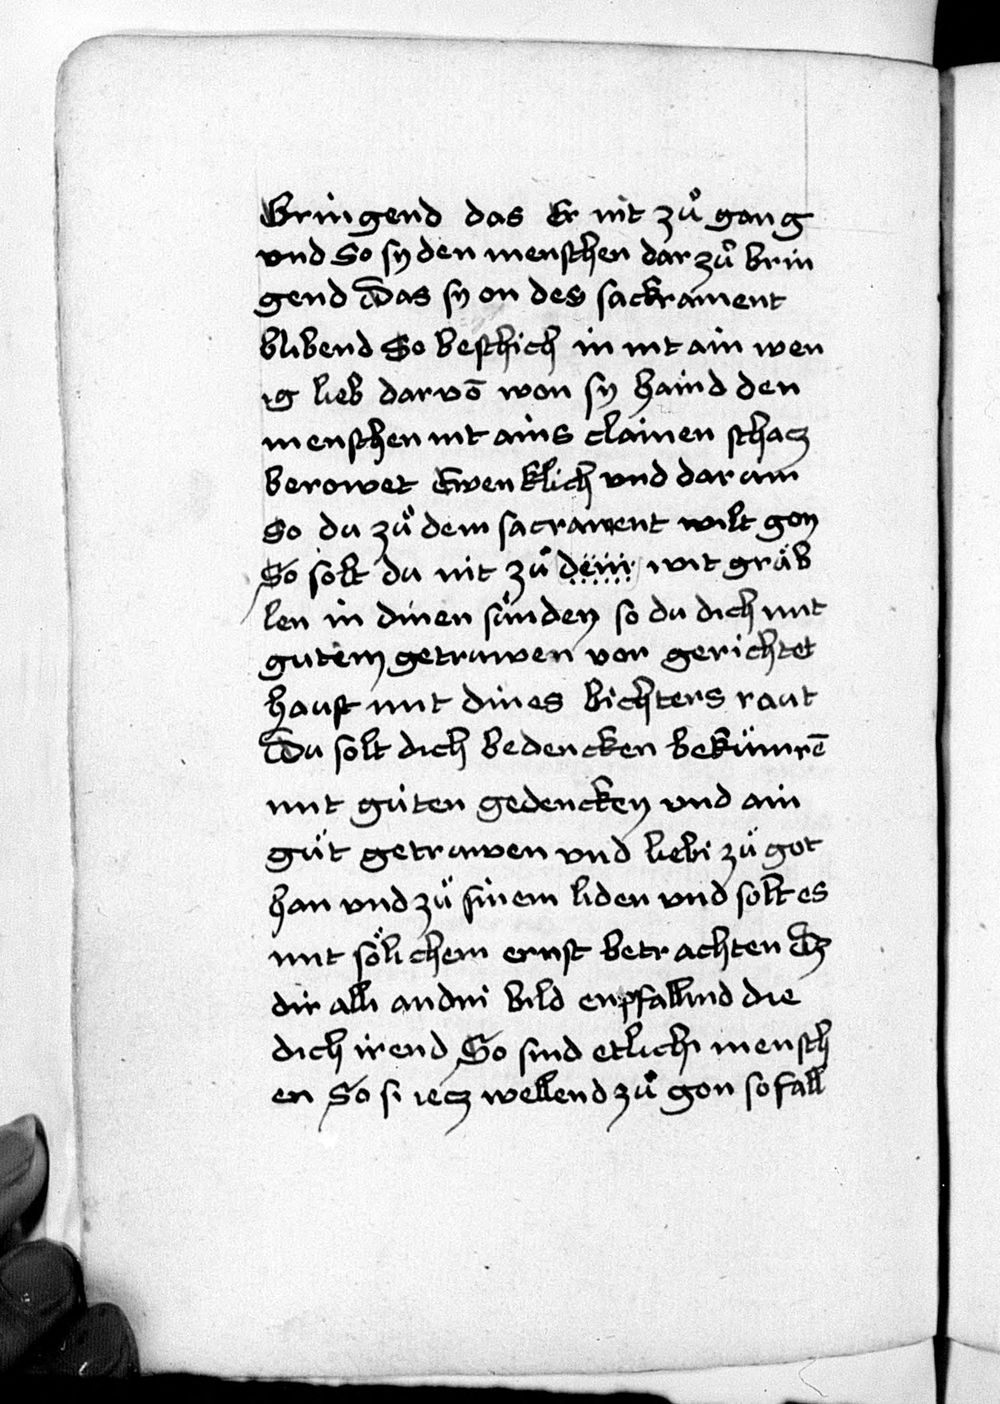 Bringend das Er nit zuͦ gang
vnd So sy den menschen dar zuͦ brin
gend Das sy on des sackrament
blibend So beschich in nit ain wen
ig lieb darvō won sy haind den
menschen nit ains clainen schacz
berowet Ewenklich vnd dar um
So du zuͦ dem sacrament wilt gon
So solt du nit zuͦ dem wit gräb
len in dinen sünden so du dich mit
gutem getruwen vor gerichtet
haust mit dines bichters raut
Du solt dich bedencken bekümrē
mit guten gedencken vnd ain
güt getruwen vnd liebi zü got
han vnd zü sinem liden vnd solt es
mit sölichem ernst betrachten Dz
dir alli andri bild enpfallind die
dich irend So sind etlichi mensch
en So si iecz wellend zuͦ gon so fall